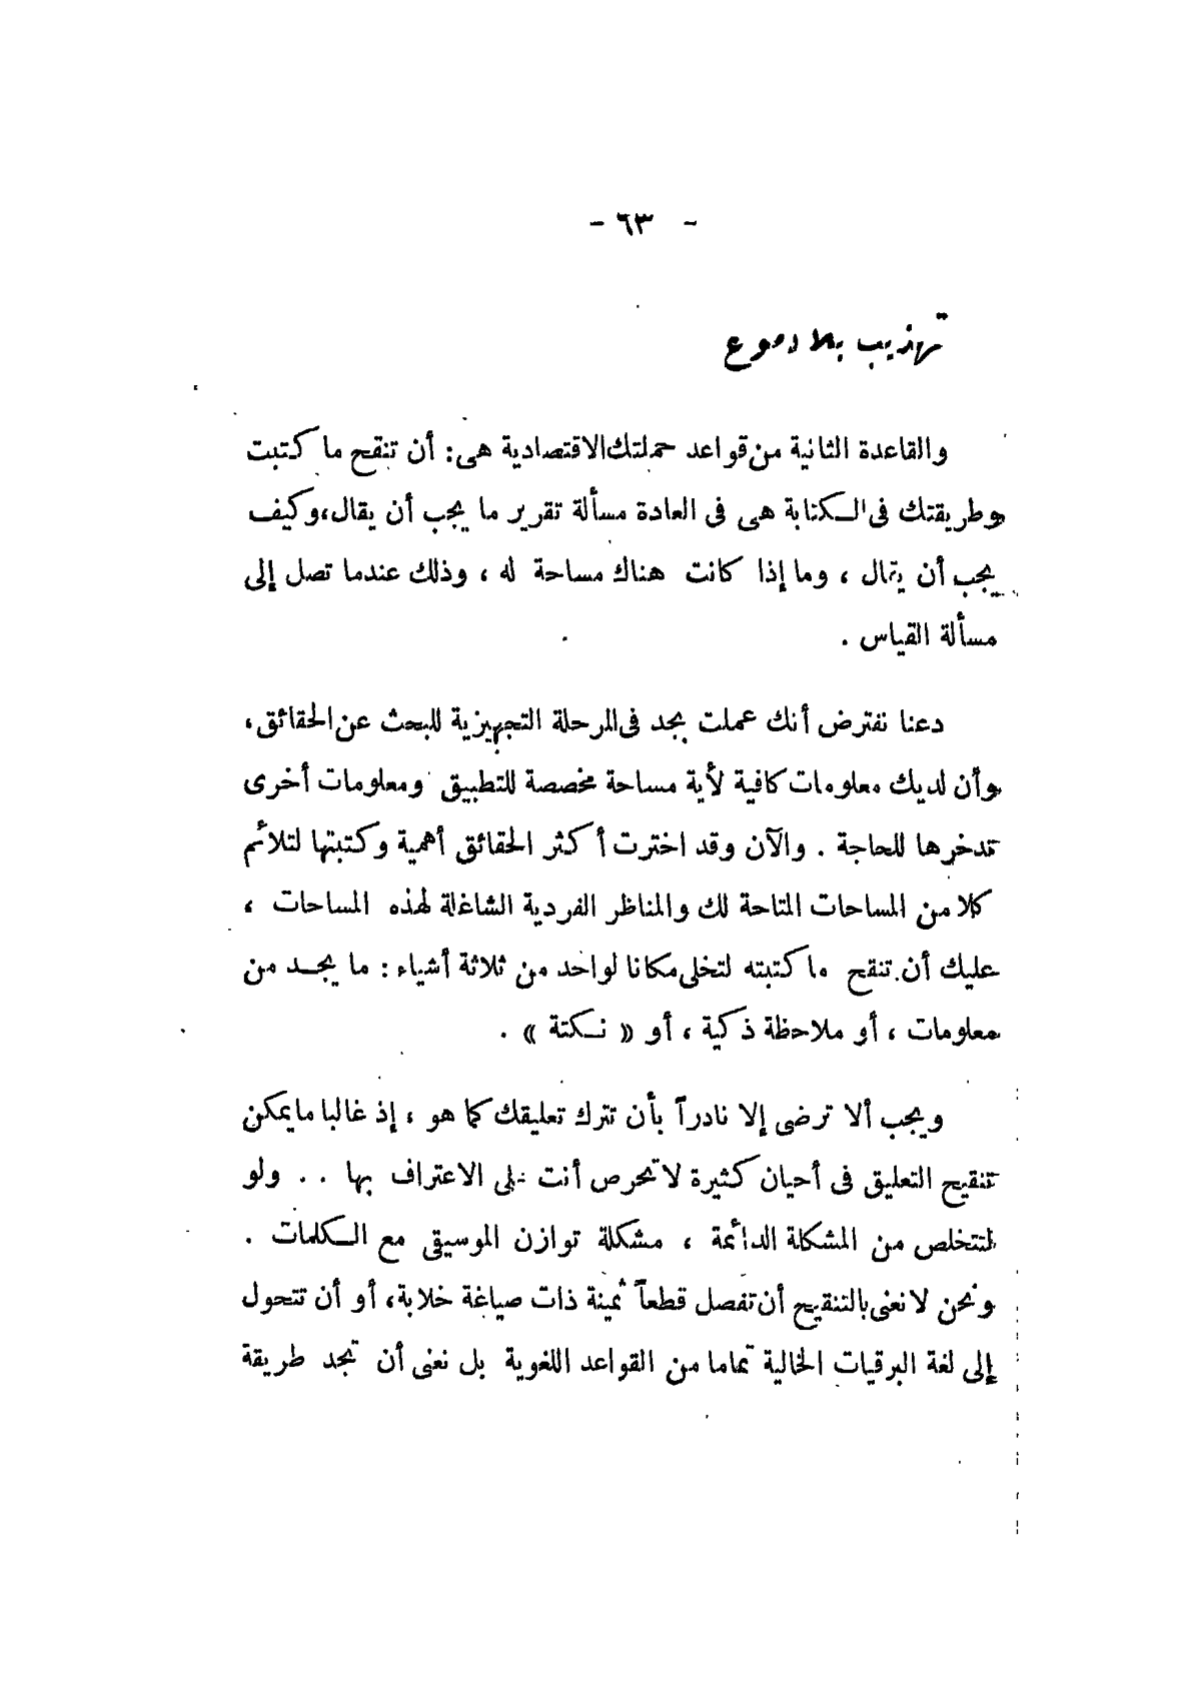 - ٦٣ -
تهذيب بلا دموع
والقاعدة الثانية من قواعد حملتك الاقتصادية هى: أن تنقح ما كتبت
وطريقتك فى الكتابة هى فى العادة مسألة تقرير ما يجب أن يقال، وكيف
يجب أن يقال ، وما إذا كانت هناك مساحة له ، وذلك عندما تصل إلى
مسألة القياس .
دعنا نفترض أنك عملت بجد فى المرحلة التجهيزية للبحث عن الحقائق،
وأن لديك معلومات كافية لأية مساحة مخصصة للتطبيق ومعلومات أخرى
تدخرها للحاجة . والآن وقد اخترت أكثر الحقائق أهمية وكتبتها لتلائم
كلا من المساحات المتاحة لك والمناظر الفردية الشاغلة لهذه المساحات ،
عليك أن تنقح ما كتبته لتخلى مكانا لواحد من ثلاثة أشياء : ما يجد من
معلومات ، أو ملاحظة ذكية ، أو « نكتة » .
ويجب ألا ترضى إلا نادراً بأن تترك تعليقك كما هو ، إذ غالبا ما يمكن
تنقيح التعليق فى أحيان كثيرة لا تحرص أنت على الاعتراف بها . . ولو
لتتخلص من المشكلة الدائمة ، مشكلة توازن الموسيقى مع الكلمات .
ونحن لا نعنى بالتنقيح أن تفصل قطعاً ثمينة ذات صياغة خلابة، أو أن تتحول
إلى لغة البرقيات الخالية تماما من القواعد اللغوية بل نعنى أن تجد طريقة